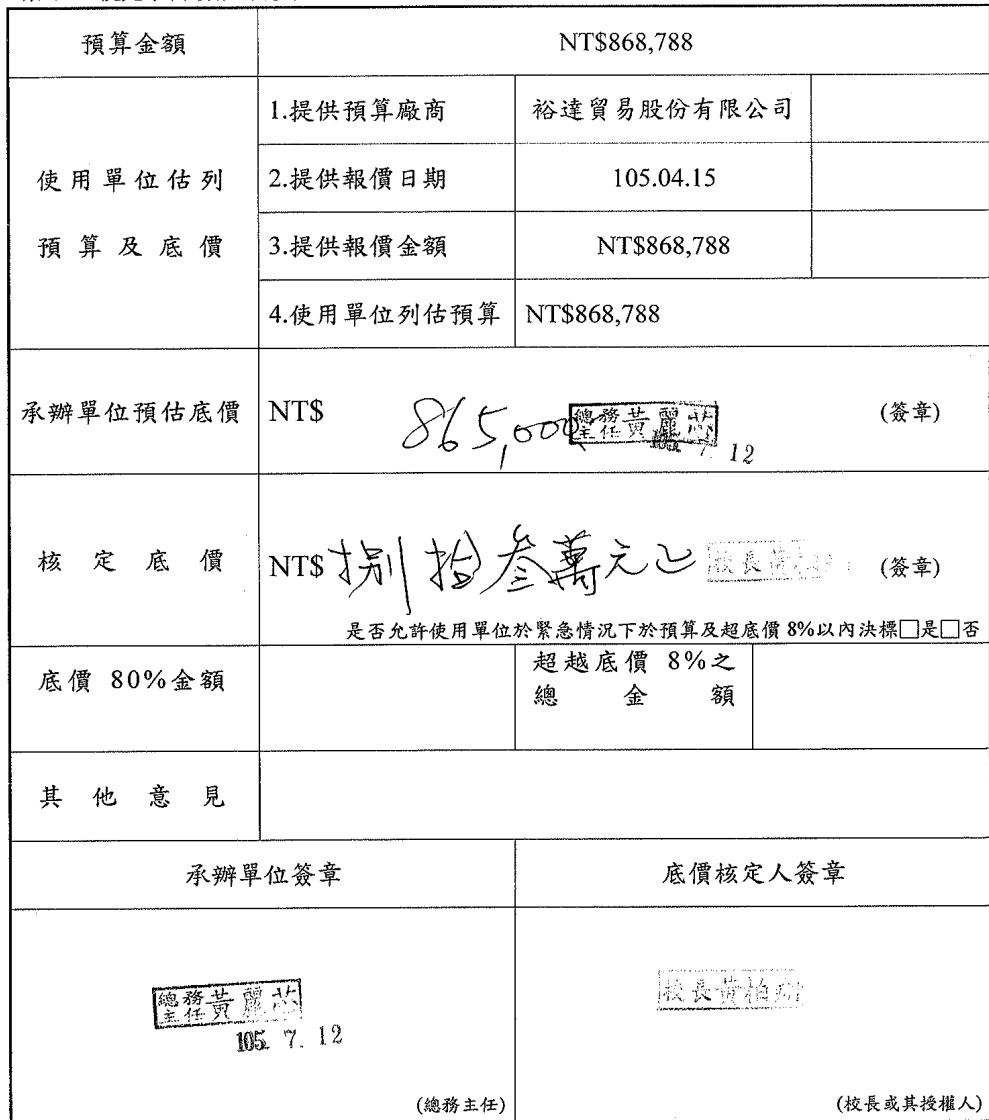 預算金額 NT$868,788
使用單位估列
預算及底價
1.提供預算廠商 裕達貿易股份有限公司
2.提供報價日期 105.04.15
3.提供報價金額 NT$868,788
4.使用單位列估預算 NT$868,788
承辦單位預估底價 NT$ 865,000 總務主任 黃麗 (簽章)
7. 12
核定底價 NT$ 捌拾叁萬元 校長黃 (簽章)
是否允許使用單位於緊急情況下於預算及超底價 8%以內決標□是□否
底價 80%金額
超越底價 8%之
總金額
其他意見
承辦單位簽章 底價核定人簽章
總務主任 黃麗
105. 7. 12
校長黃柏
(總務主任) (校長或其授權人)